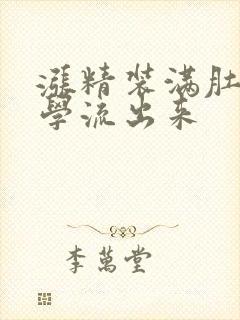 漲精装满肚
學流出来
李萬堂